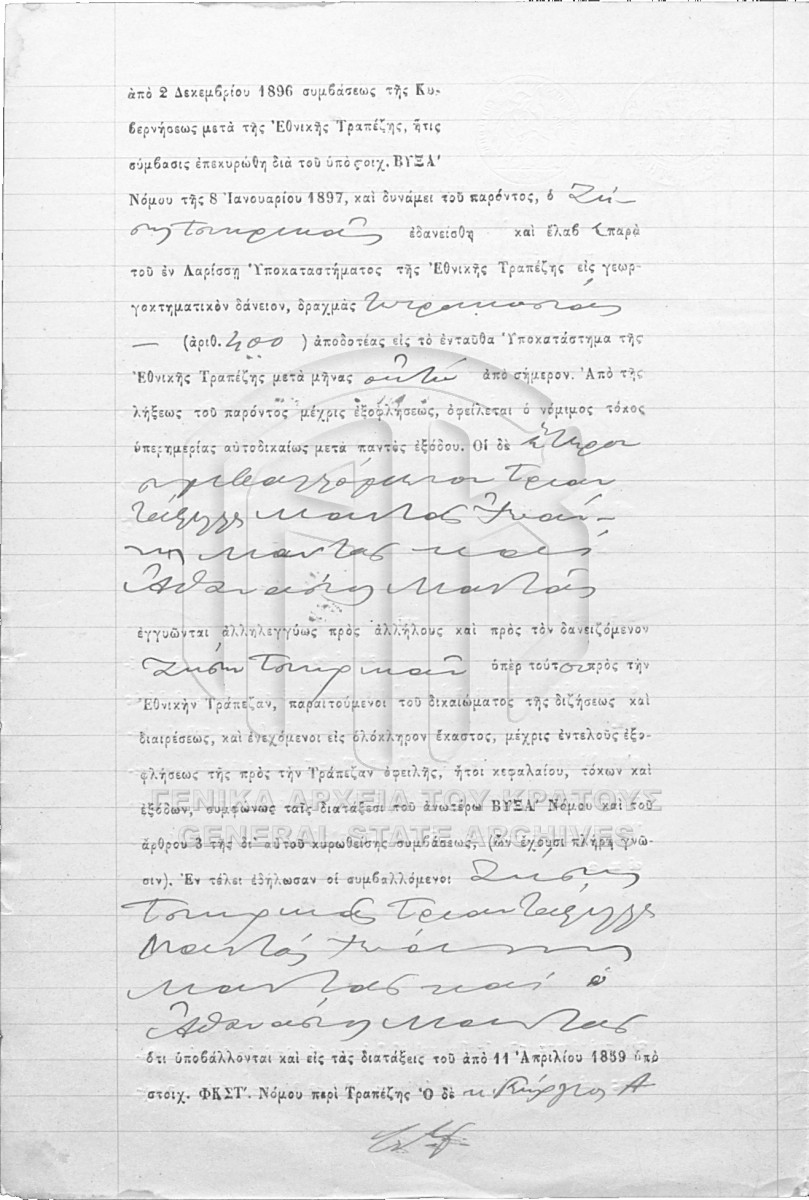 ἀπὸ 2 Δεκεμβρίου 1896 συμβάσεως τῆς Κυ-
βερνήσεως μετὰ τῆς Ἐθνικῆς Τραπέζης, ἥτις
σύμβασις ἐπεκυρώθη διὰ τοῦ ὑπὸ ϛοιχ. ΒΥΞΑʹ
Νόμου τῆς 8 Ἰανουαρίου 1897, καὶ δυνάμει τοῦ παρόντος, ὁ Ζή-
σης ἐδανείσθη καὶ ἔλαβε παρὰ
τοῦ ἐν Λαρίσσῃ Ὑποκαταστήματος τῆς Ἐθνικῆς Τραπέζης εἰς γεωρ-
γοκτηματικὸν δάνειον, δραχμὰς τετρακοσίας
— (ἀριθ. 400 ) ἀποδοτέας εἰς τὸ ἐνταῦθα Ὑποκατάστημα τῆς
Ἐθνικῆς Τραπέζης μετὰ μῆνας ὀκτώ ἀπὸ σήμερον. Ἀπὸ τῆς
λήξεως τοῦ παρόντος μέχρις ἐξοφλήσεως, ὀφείλεται ὁ νόμιμος τόκος
ὑπερημερίας αὐτοδικαίως μετὰ παντὸς ἐξόδου. Οἱ δὲ ἕτεροι
συμβαλλόμενοι Τριαν
τάφυλλος Μαντᾶς Ἰωάν-
νης Μαντᾶς καὶ
Ἀθανάσιος Μαντᾶς
ἐγγυῶνται ἀλληλεγγύως πρὸς ἀλλήλους καὶ πρὸς τὸν δανειζόμενον
Ζήσην ὑπὲρ τούτου πρὸς τὴν
Ἐθνικὴν Τράπεζαν, παραιτούμενοι τοῦ δικαιώματος τῆς διζήσεως καὶ
διαιρέσεως, καὶ ἐνεχόμενοι εἰς ὁλόκληρον ἕκαστος, μέχρις ἐντελοῦς ἐξο-
φλήσεως τῆς πρὸς τὴν Τράπεζαν ὀφειλῆς, ἤτοι κεφαλαίου, τόκων καὶ
ΓΕΝΙΚΑ ΑΡΧΕΙΑ ΤΟΥ ΚΡΑΤΟΥΣ
ἐξόδων, συμφώνως ταῖς διατάξεσι τοῦ ἀνωτέρω ΒΥΞΑʹ Νόμου καὶ τοῦ
GENERAL STATE ARCHIVES
ἄρθρου 3 τῆς δι᾽ αὐτοῦ κυρωθείσης συμβάσεως, (ὧν ἔχουσι πλήρη γνῶ-
σιν). Ἐν τέλει ἐδήλωσαν οἱ συμβαλλόμενοι Ζήσης
Τριαντάφυλλος
Μαντᾶς Ἰωάννης
Μαντᾶς καὶ ὁ
Ἀθανάσιος Μαντᾶς
ὅτι ὑποβάλλονται καὶ εἰς τὰς διατάξεις τοῦ ἀπὸ 11 Ἀπριλίου 1859 ὑπὸ
στοιχ. ΦΚΣΤʹ. Νόμου περὶ Τραπέζης Ὁ δὲ κ. Γεώργιος Α